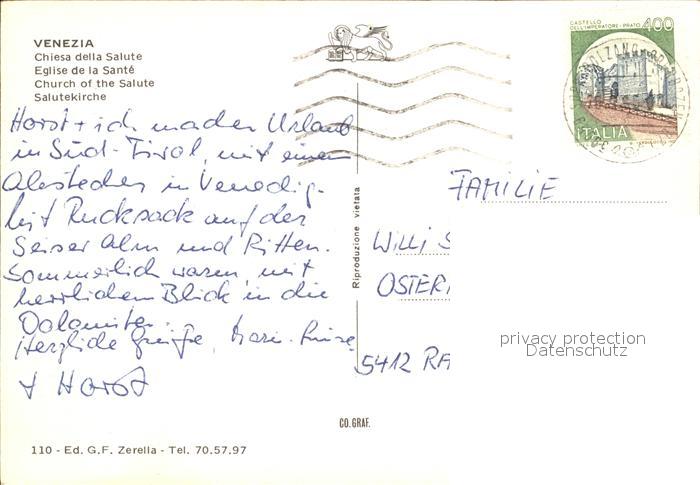 VENEZIA
Chiesa della Salute
Eglise de la Santé
Church of the Salute
Salutekirche
Horst + ich machen Urlaub
in Süd-Tirol, mit einem
Abstecher in Venedig.
Mit Rucksack auf der
Seiser Alm und Ritten.
Sommerlich warm, mit
herrlichem Blick in die
Dolomiten.
Herzliche Grüße,
+ Horst
110 - Ed. G.F. Zerella - Tel. 70.57.97
Riproduzione vietata
CO. GRAF.
CASTELLO
DELL'IMPERATORE - PRATO 400
ITALIA
BOLZANO
FAMILIE
WILLI S
OSTER
5412 RA
privacy protection
Datenschutz